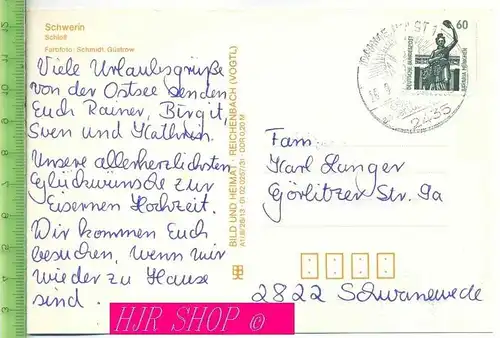 Schwerin
Schloß
Farbfoto: Schmidt, Güstrow
Viele Urlaubsgrüße
von der Ostsee senden
Euch Rainer, Birgit,
Sven und Kathrin.
Unsere allerherzlichsten
Glückwünsche zur
Eisernen Hochzeit.
Wir kommen Euch
besuchen, wenn wir
wieder zu Hause
sind.
BILD UND HEIMAT · REICHENBACH (VOGTL)
A1/B/26/13 · 01 02 0257/31 · DDR 0,20 M
60
DEUTSCHE BUNDESPOST
BAVARIA MÜNCHEN
2435
Fam.
Karl Langer
Görlitzer Str. 9a
2822 Schwanewede
HJR SHOP ©